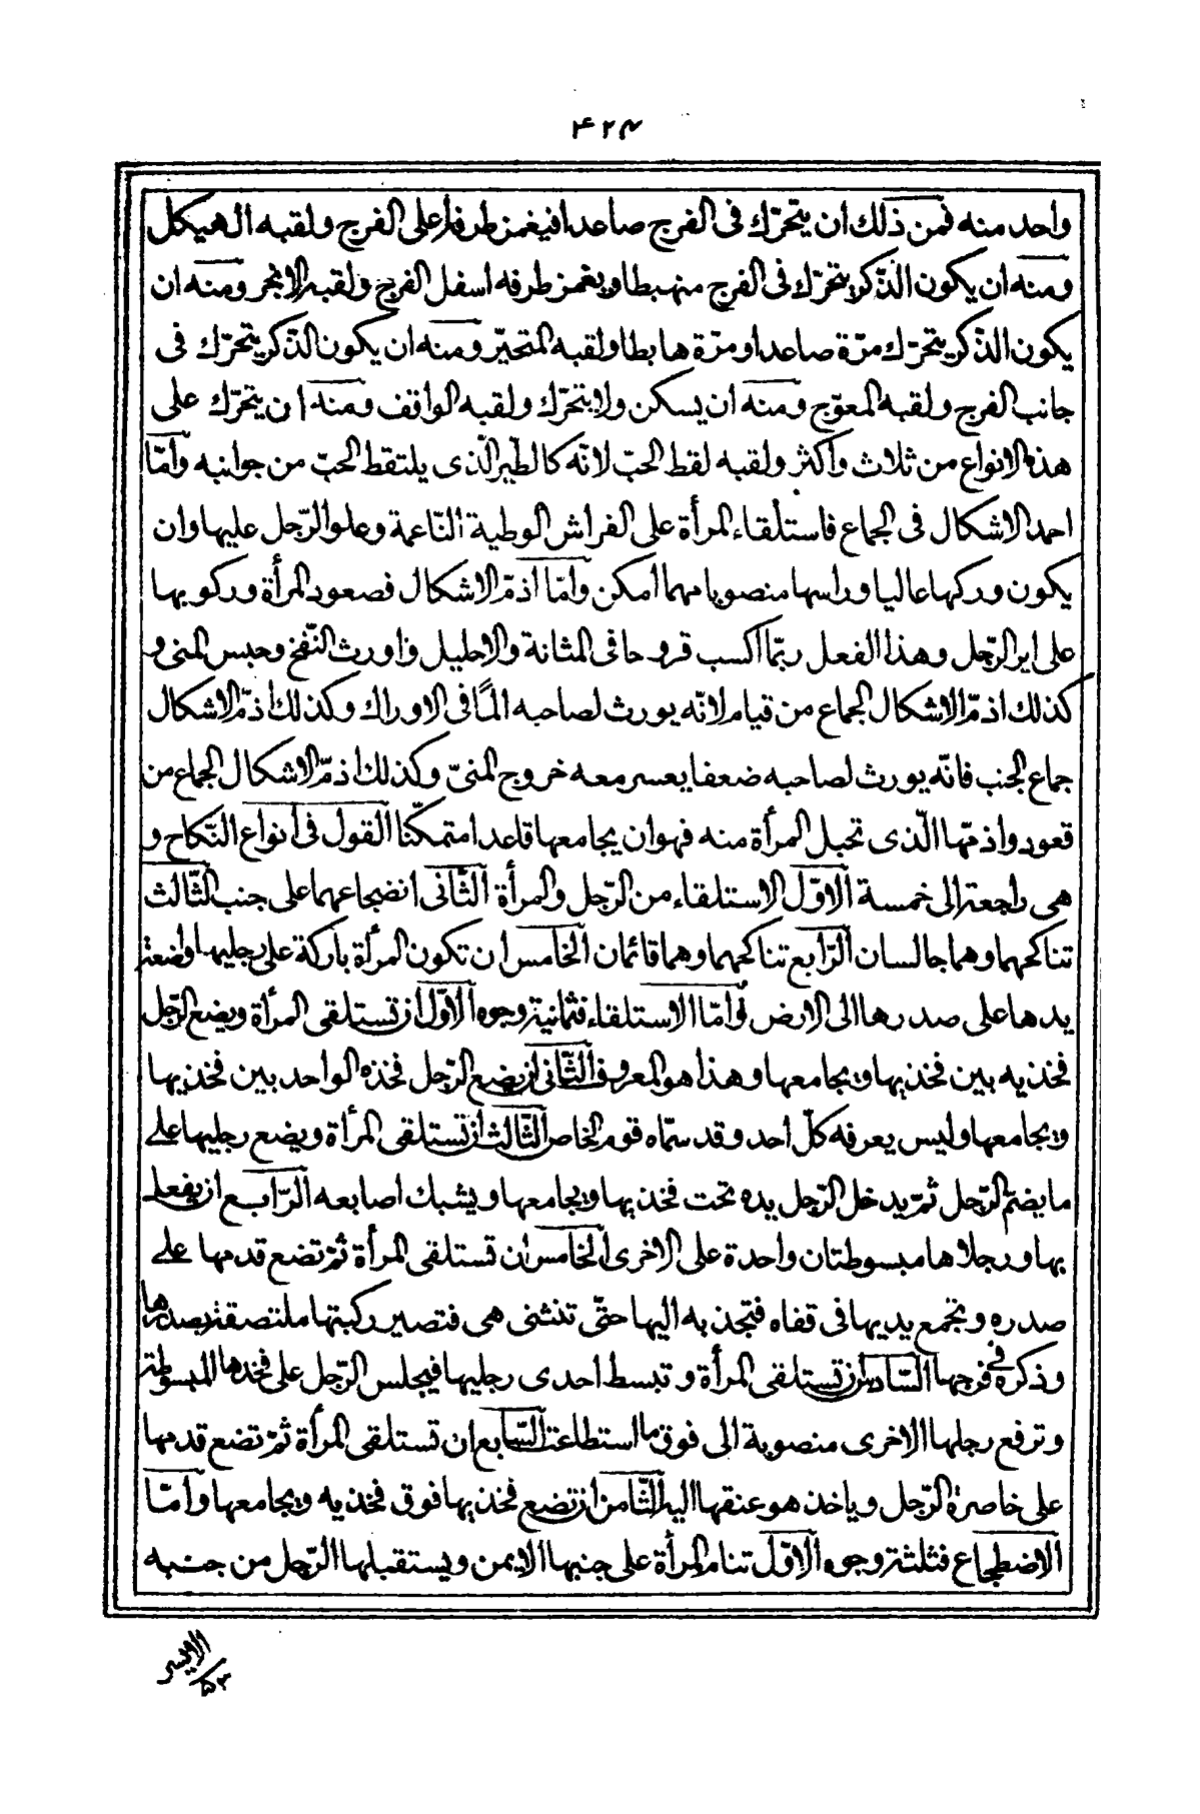 ۴۲۳
واحد منه فمن ذلك ان يتحرّك فى الفرج صاعدا فيغمز طرفاه على الفرج ولقبه الهيكل
ومنه ان يكون الذّكر يتحرّك فى الفرج منهبطا ويغمز طرفه اسفل الفرج ولقبه ومنه ان
يكون الذّكر يتحرّك مرّة صاعدا ومرّة هابطا ولقبه المتحيّر ومنه ان يكون الذّكر يتحرّك فى
جانب الفرج ولقبه المعوّج ومنه ان يسكن ولا يتحرّك ولقبه الواقف ومنه ان يتحرّك على
هذه الانواع من ثلاث واكثر ولقبه لقط الحبّ لانّه كالطّير الّذى يلتقط الحبّ من جوانبه وامّا
احمد الاشكال فى الجماع فاستلقاء المرأة على الفراش الوطية النّاعمة وعلو الرّجل عليها وان
يكون وركها عاليا وراسها منصوبا مهما امكن وامّا اذمّ الاشكال فصعود المرأة وركوبها
على اير الرّجل وهذا الفعل ربّما اكسب قروحا فى المثانة والاحليل واورث النّفخ وحبس المنى و
كذلك اذمّ الاشكال الجماع من قيام لانّه يورث لصاحبه المًا فى الاوراك وكذلك اذمّ الاشكال
جماع الجنب فانّه يورث لصاحبه ضعفا يعسر معه خروج المنىّ وكذلك اذمّ الاشكال الجماع من
قعود واذمّها الّذى تحبل المرأة منه فهو ان يجامعها قاعدا متمكّنا القول فى انواع النّكاح و
هى راجعة الى خمسة الاوّل الاستلقاء من الرّجل والمرأة الثّانى انضجاعهما على جنب الثّالث
تناكحهما وهما جالسان الرّابع تناكحهما وهما قائمان الخامس ان تكون المرأة باركة على رجليها واضعة
يدها على صدرها الى الارض وامّا الاستلقاء فثمانية وجوه الاوّل ان تستلقى المرأة ويضع الرّجل
فخذيه بين فخذيها ويجامعها وهذا هو المعروف الثّانى ان يضع الرّجل فخذه الواحد بين فخذيها
ويجامعها وليس يعرفه كلّ احد وقد سمّاه قوم الخاص الثّالث ان تستلقى المرأة ويضع رجليها على
ما يضمّ الرّجل ثمّ يدخل الرّجل يده تحت فخذيها ويجامعها ويشبك اصابعه الرّابع ان يفعل
بها ورجلاها مبسوطتان واحدة على الاخرى الخامس ان تستلقى المرأة ثمّ تضع قدمها على
صدره وتجمع يديها فى قفاه فتجذبه اليها حتّى تنثنى هى فتصير ركبتها ملتصقة بصدرها
وذكره فى فرجها السّادس ان تستلقى المرأة وتبسط احدى رجليها فيجلس الرّجل على فخذها المبسوطة
وترفع رجلها الاخرى منصوبة الى فوق ما استطاعت السّابع ان تستلقى المرأة ثمّ تضع قدمها
على خاصرة الرّجل وياخذ هو عنقها اليه الثّامن ان تضع فخذيها فوق فخذيه ويجامعها وامّا
الاضطجاع فثلثة وجوه الاوّل تنام المرأة على جنبها الايمن ويستقبلها الرّجل من جنبه
الايسر